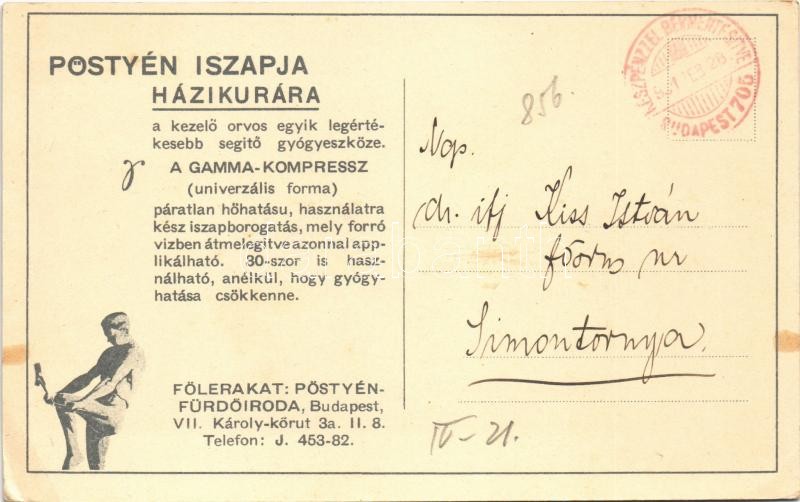 PÖSTYÉN ISZAPJA
HÁZIKURÁRA
a kezelő orvos egyik legérté-
kesebb segitő gyógyeszköze.
A GAMMA-KOMPRESSZ
(univerzális forma)
páratlan hőhatásu, használatra
kész iszapborogatás, mely forró
vizben átmelegitve azonnal app-
likálható. 30-szor is hasz-
nálható, anélkül, hogy gyógy-
hatása csökkenne.
FŐLERAKAT: PÖSTYÉN-
FÜRDŐIRODA, Budapest,
VII. Károly-kőrut 3a. II. 8.
Telefon: J. 453-82.
KÉSZPÉNZZEL BÉRMENTESITVE
BUDAPEST 705
856.
Ngs.
dr. ifj Kiss István
főorvs ur
Simontornya.
IV-21.